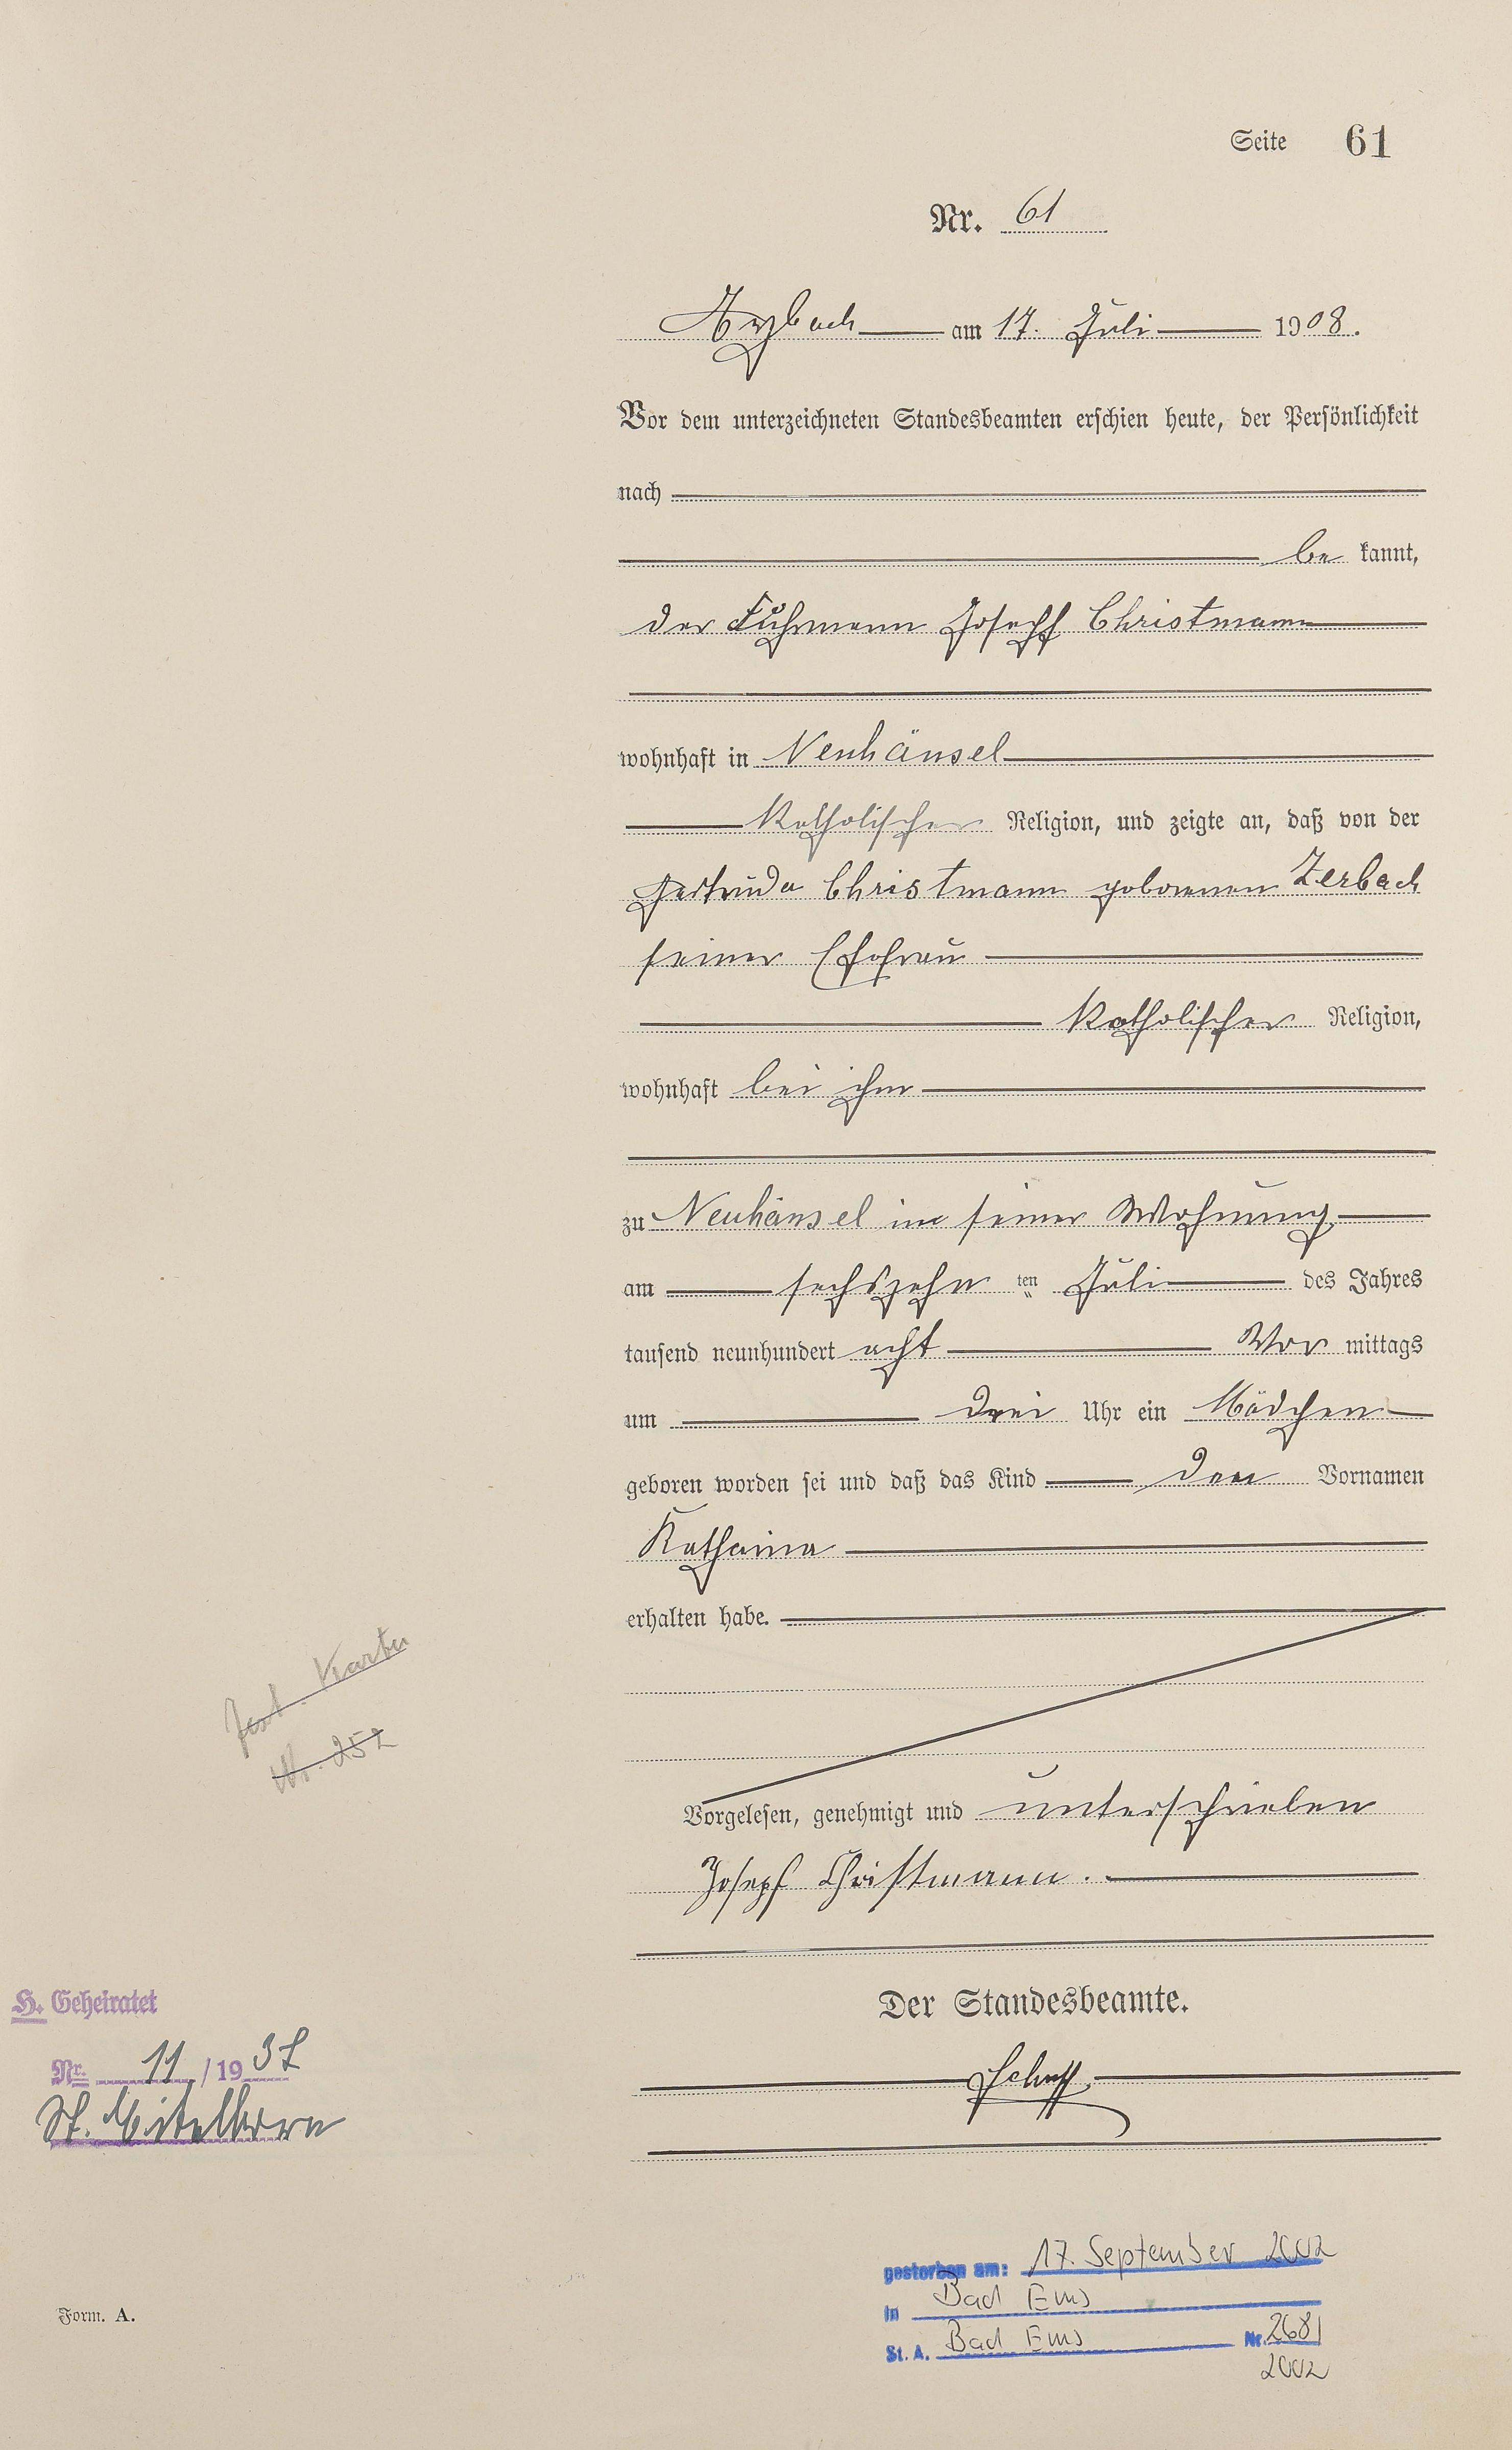 Seite 61
Nr. 61
Arzbach am 17. Juli 1908.
Vor dem unterzeichneten Standesbeamten erschien heute, der Persönlichkeit
nach
be kannt,
der Fuhrmann Joseph Christmann
wohnhaft in Neuhäusel
katholischer Religion, und zeigte an, daß von der
Gertruda Christmann geborenen Zerbach
seiner Ehefrau
katholischer Religion,
wohnhaft bei ihm
zu Neuhäusel in seiner Wohnung
am sechszehn ten Juli des Jahres
tausend neunhundert acht Vor mittags
um drei Uhr ein Mädchen
geboren worden sei und daß das Kind den Vornamen
Katharina
erhalten habe.
Karte
Nr. 252
Vorgelesen, genehmigt und unterschrieben
Joseph Christmann.
Der Standesbeamte.
H. Geheiratet
Nr. 11 / 19 37
St.
gestorben am: 17. September 2002
in Bad Ems
St. A. Bad Ems Nr. 268/
2002
Form. A.